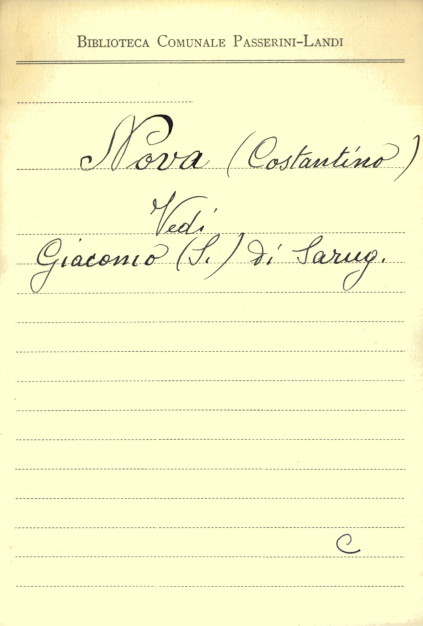 BIBLIOTECA COMUNALE PASSERINI-LANDI
Nova (Costantino)
Vedi
Giacomo (S.) di Sarug.
C